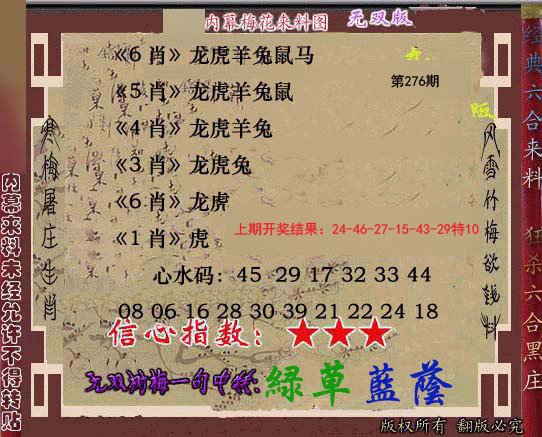 内幕梅花来料图 无双版
《6 肖》龙虎羊兔鼠马
第276期
《5 肖》龙虎羊兔鼠
《4 肖》龙虎羊兔
《3 肖》龙虎兔
《6 肖》龙虎
上期开奖结果：24-46-27-15-43-29特10
《1 肖》虎
心水码：45 29 17 32 33 44
08 06 16 28 30 39 21 22 24 18
信心指数：★★★
无双剑梅一句中特：緑草藍蔭
版权所有 翻版必究
寒梅屠庄生肖
风雪竹梅欲钱料
内幕来料未经允许不得转贴
经典六合来料 狂杀六合黑庄